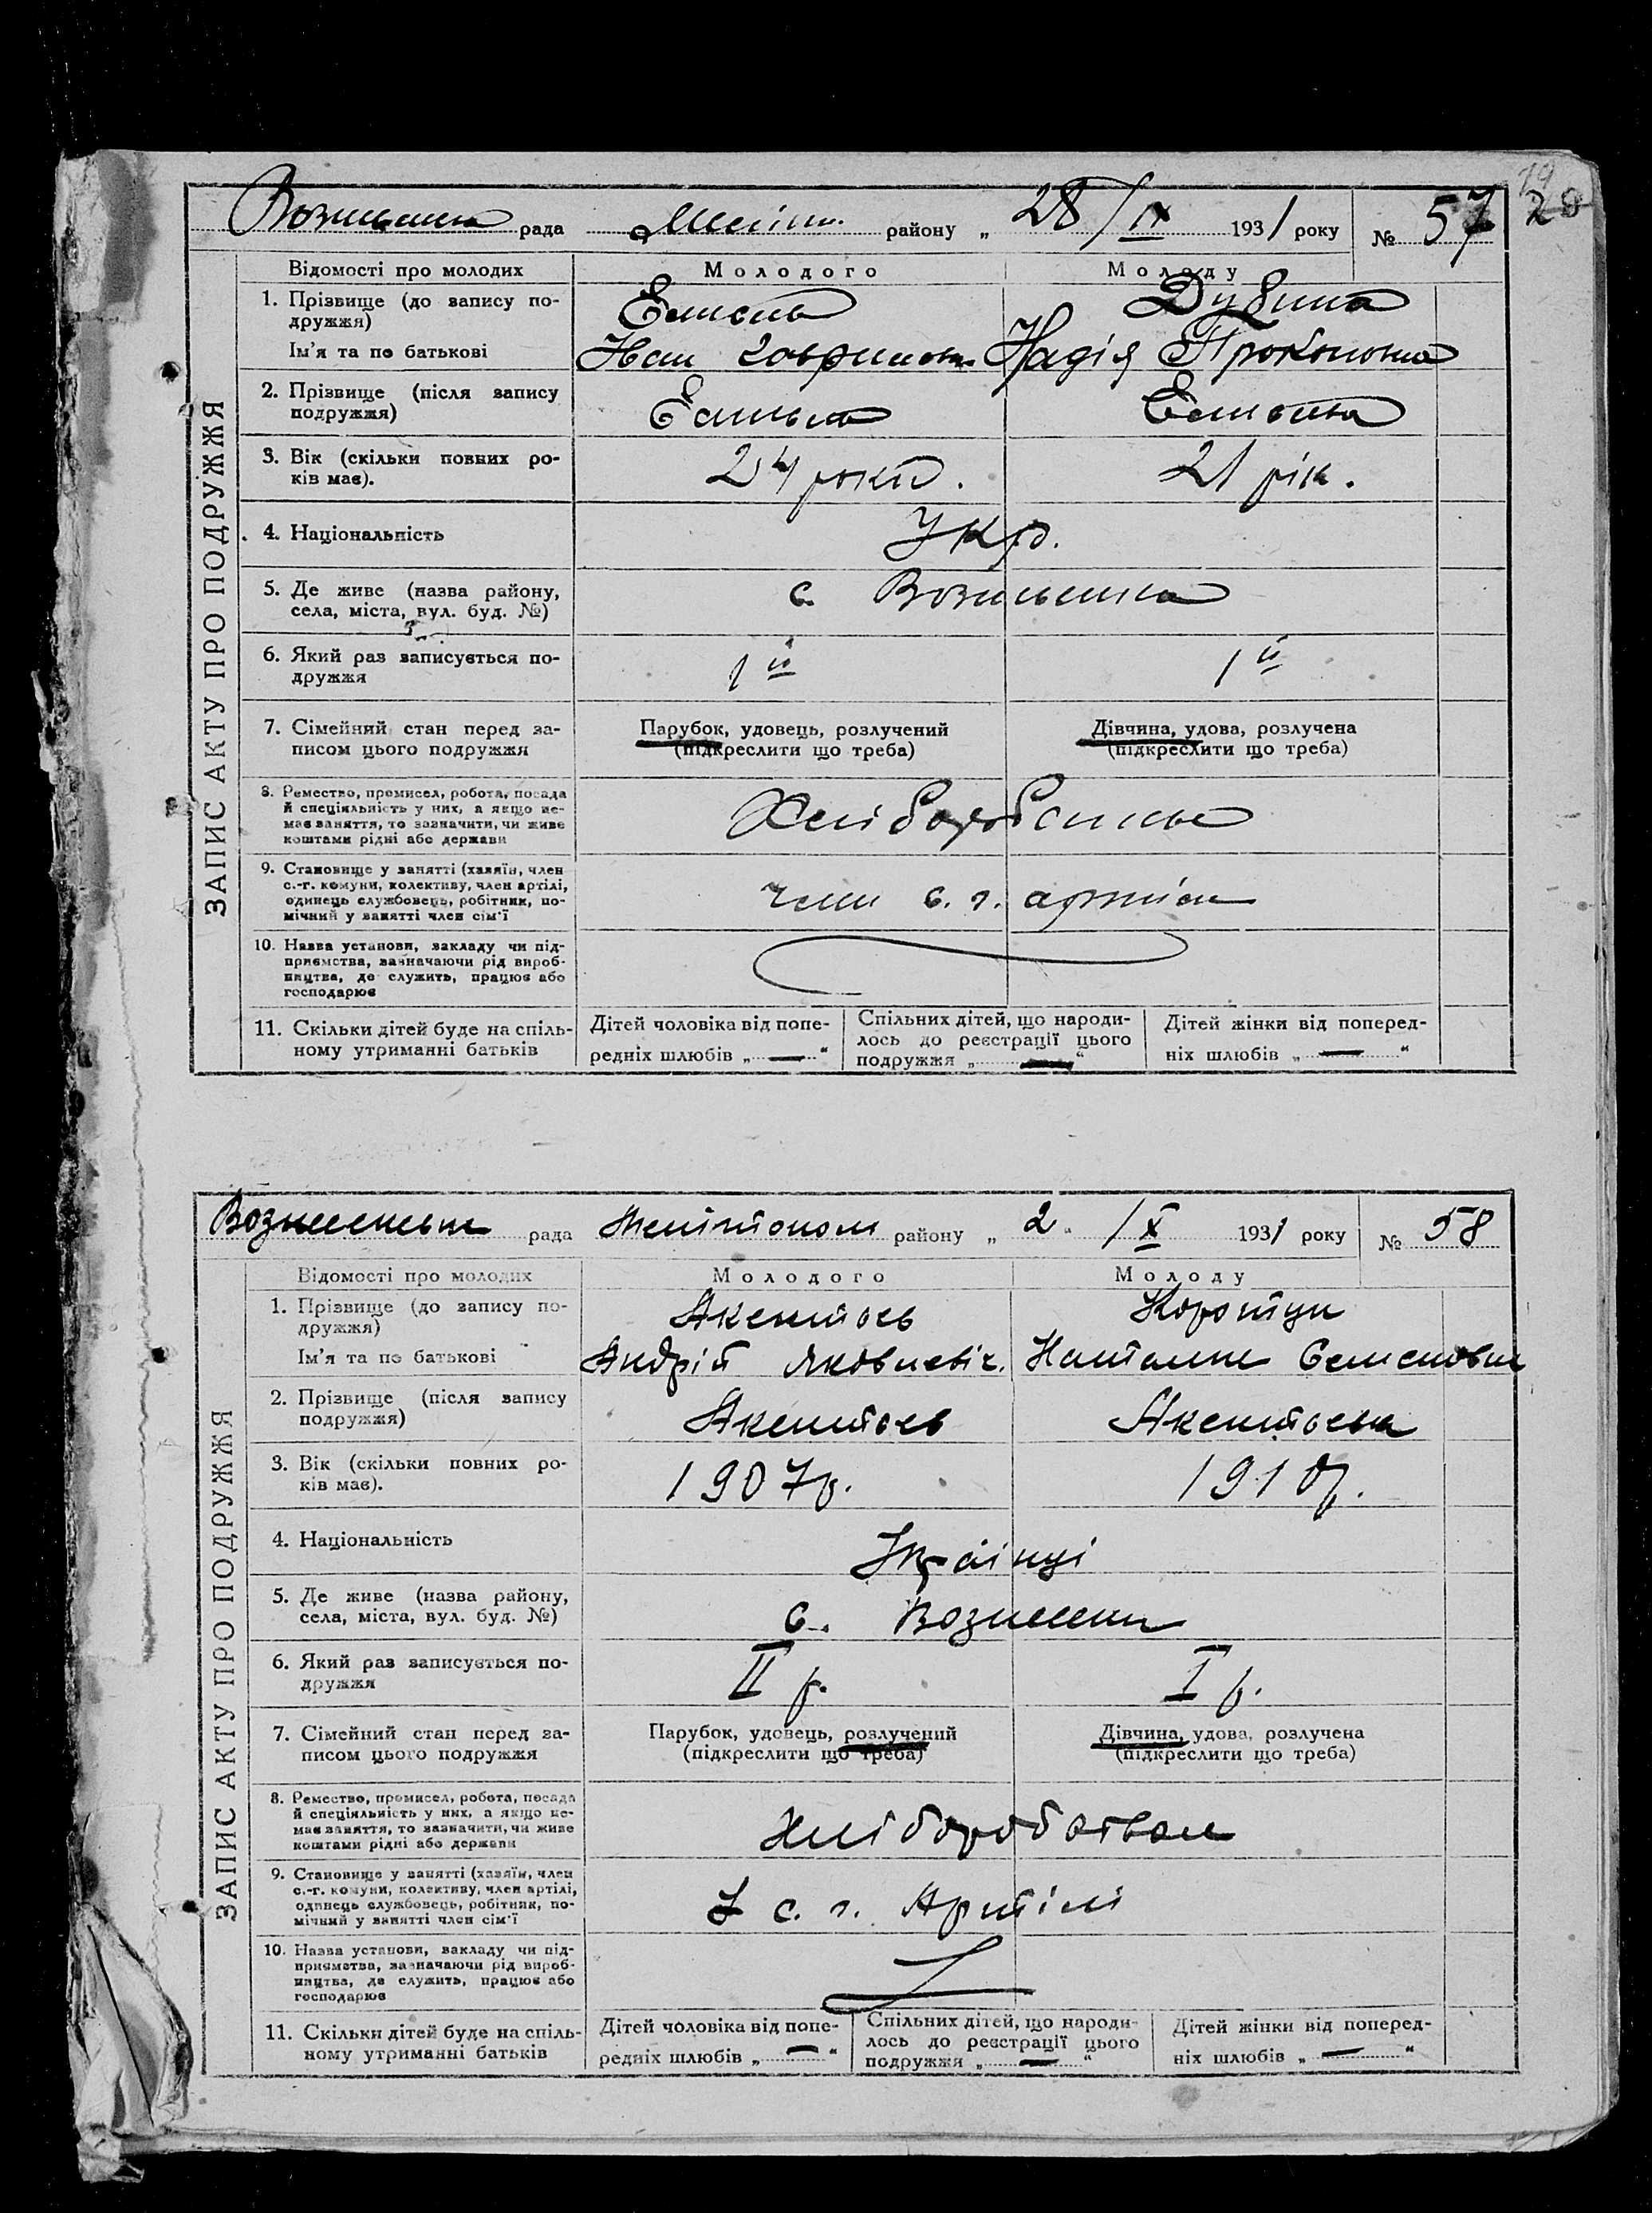 19
20
рада району „ 28/IX 1931 року № 57
ЗАПИС АКТУ ПРО ПОДРУЖЖЯ
Відомості про молодих Молодого Молоду
1. Прізвище (до запису по-
дружжя)
Дубина
Ім'я та по батькові
Іван Надія
2. Прізвище (після запису
подружжя)
3. Вік (скільки повних ро-
ків має).
24 роки. 21 рік.
4. Національність
Укр.
5. Де живе (назва району,
села, міста, вул. буд. №)
с.
6. Який раз записується по-
дружжя
1й 1й
7. Сімейний стан перед за-
писом цього подружжя
Парубок, удовець, розлучений
(підкреслити що треба)
Дівчина, удова, розлучена
(підкреслити що треба)
8. Ремество, промисел, робота, посада
й спеціяльність у них, а якщо не-
має заняття, то зазначити, чи живе
коштами рідні або держави
9. Становище у занятті (хазяїн, член
с.-г. комуни, колективу, член артілі,
одинець службовець, робітник, по-
мічний у занятті член сім'ї
член с. г. артіли
10. Назва установи, закладу чи під-
приємства, зазначаючи рід вироб-
ництва, де служить, працює або
господарює
11. Скільки дітей буде на спіль-
ному утриманні батьків
Дітей чоловіка від попе-
редніх шлюбів „ — “
Спільних дітей, що народи-
лось до реєстрації цього
подружжя „ — “
Дітей жінки від поперед-
ніх шлюбів „ — “
рада району „ 2 /X 1931 року № 58
ЗАПИС АКТУ ПРО ПОДРУЖЖЯ
Відомості про молодих Молодого Молоду
1. Прізвище (до запису по-
дружжя)
Акентьев Коротун
Ім'я та по батькові
Андрій Яковлевіч. Наталия Семеновна
2. Прізвище (після запису
подружжя)
Акентьев Акентьева
3. Вік (скільки повних ро-
ків має).
1907р. 1910р.
4. Національність
Українці
5. Де живе (назва району,
села, міста, вул. буд. №)
с.
6. Який раз записується по-
дружжя
II р. I р.
7. Сімейний стан перед за-
писом цього подружжя
Парубок, удовець, розлучений
(підкреслити що треба)
Дівчина, удова, розлучена
(підкреслити що треба)
8. Ремество, промисел, робота, посада
й спеціяльність у них, а якщо не-
має заняття, то зазначити, чи живе
коштами рідні або держави
9. Становище у занятті (хазяїн, член
с.-г. комуни, колективу, член артілі,
одинець службовець, робітник, по-
мічний у занятті член сім'ї
У с. г. Артілі
10. Назва установи, закладу чи під-
приємства, зазначаючи рід вироб-
ництва, де служить, працює або
господарює
11. Скільки дітей буде на спіль-
ному утриманні батьків
Дітей чоловіка від попе-
редніх шлюбів „ — “
Спільних дітей, що народи-
лось до реєстрації цього
подружжя „ — “
Дітей жінки від поперед-
ніх шлюбів „ — “